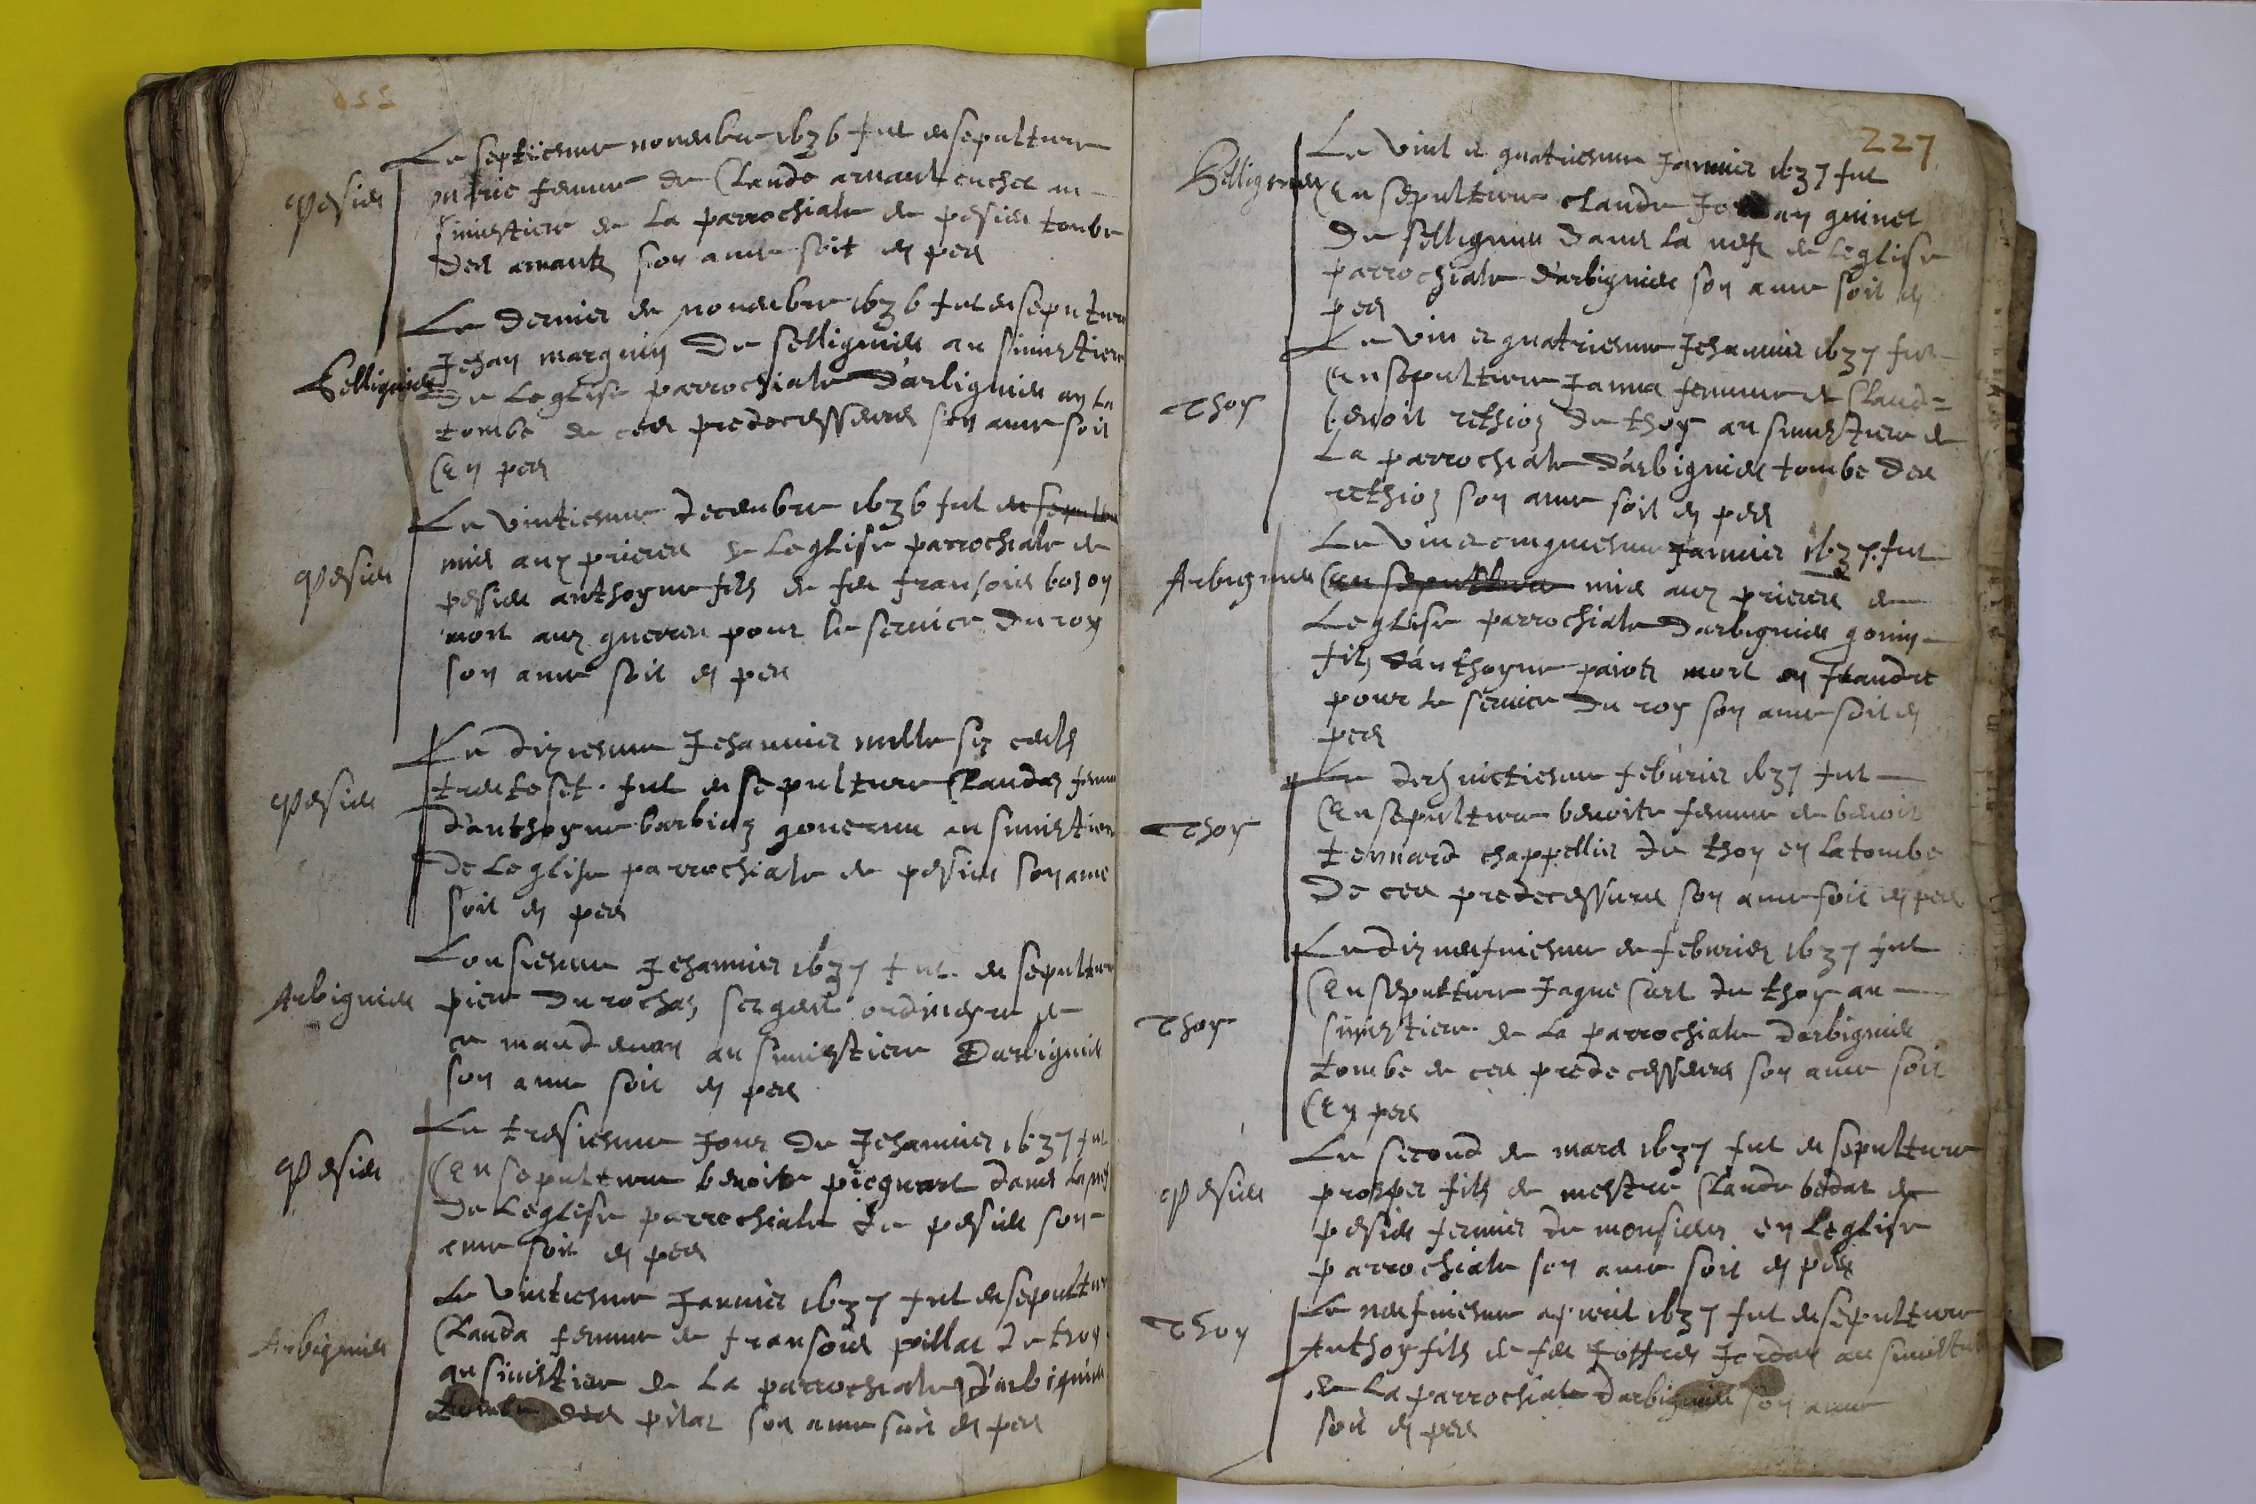 Pesieu
Le septiesme novenbre 1636 fut ensepulture
femme de Claude arnaut au
simistiere de la parrochiale de pesieu tonbe
des arnautz son ame soit en pes
Sellignieu
Le dernier de novenbre 1636 fut ensepulture
Jehan marguin de sellignieu au simistiere
de leglise parrochiale darbignieu en la
tombe de ces predecesseurs son ame soit
en pes
Pesieu
Le vintiesme decenbre 1636 fut ensepultu
mis aux prieres de leglise parrochiale de
pesieu anthoyne filz de feu fransois boson
mort aux guerres pour le service du roy
son ame soit en pes
Pesieu
Le diziesme Jehanvier mille six cents
trente set fut ensepulture Claudaz femme
danthoyne barbiaz au simistiere
de leglise parrochiale de pesieu son ame
soit en pes
Arbignieu
Lonsiesme Jehanvier 1637 fut ensepulture
piere du rochaz sergent ordineyre de
ce mandemen au simistiere Darbignieu
son ame soit en pes
Pesieu
Le tresiesme Jour de Jehanvier 1637 fut
ensepulture benoite picquart dans la nef
de leglise parrochiale de pesieu son
ame soit en pes
Arbignieu
Le vintiesme Janvier 1637 fut ensepulture
Clauda femme de fransois pillat de thoy
au simistiere de la parrochiale d'arbignieu
tombe des pilat son ame soit en pes
227
Sellignieu
Le vint et quatriesme Janvier 1637 fut
ensepulture claude guinet
De sellignieu dans la nef de leglise
parrochiale darbignieu son ame soit en
pes
Thoy
Le vin et quatriesme Jehanvier 1637 fut
ensepulture Janna femme de Claude
benoit rethioz de thoy au simistiere de
la parrochiale darbignieu tombe des
rethioz son ame soit en pes
Arbignieu
Le vin et cinquiesme Janvier 1637 fut
ensepulture mis aux prieres de
leglise parrochiale darbignieu gonin
filz danthoyne paiotz mort en flandre
pour le service du roy son ame soit en
pes
Thoy
Le febvrier 1637 fut
ensepulture benoite femme de benoit
tennard chappellier de thoy en la tombe
De ces predecessurs son ame soit en pes
Thoy
Le diz neufviesme de febvrier 1637 fut
ensepulture Jaque Curt de thoy au
simistiere de la parrochiale darbignieu
tombe de ces predecesseurs son ame soit
en pes
Pesieu
Le second de mars 1637 fut ensepulture
prosper filz de mestre Claude bedat de
pesieu fermier de monsieur en leglise
parrochiale son ame soit en pes
Thoy
Le neufviesme apvril 1637 fut ensepulture
Anthoy filz de feu Joffrey Jordan au simistiere
de la parrochiale darbignieu son ame
soit en pes